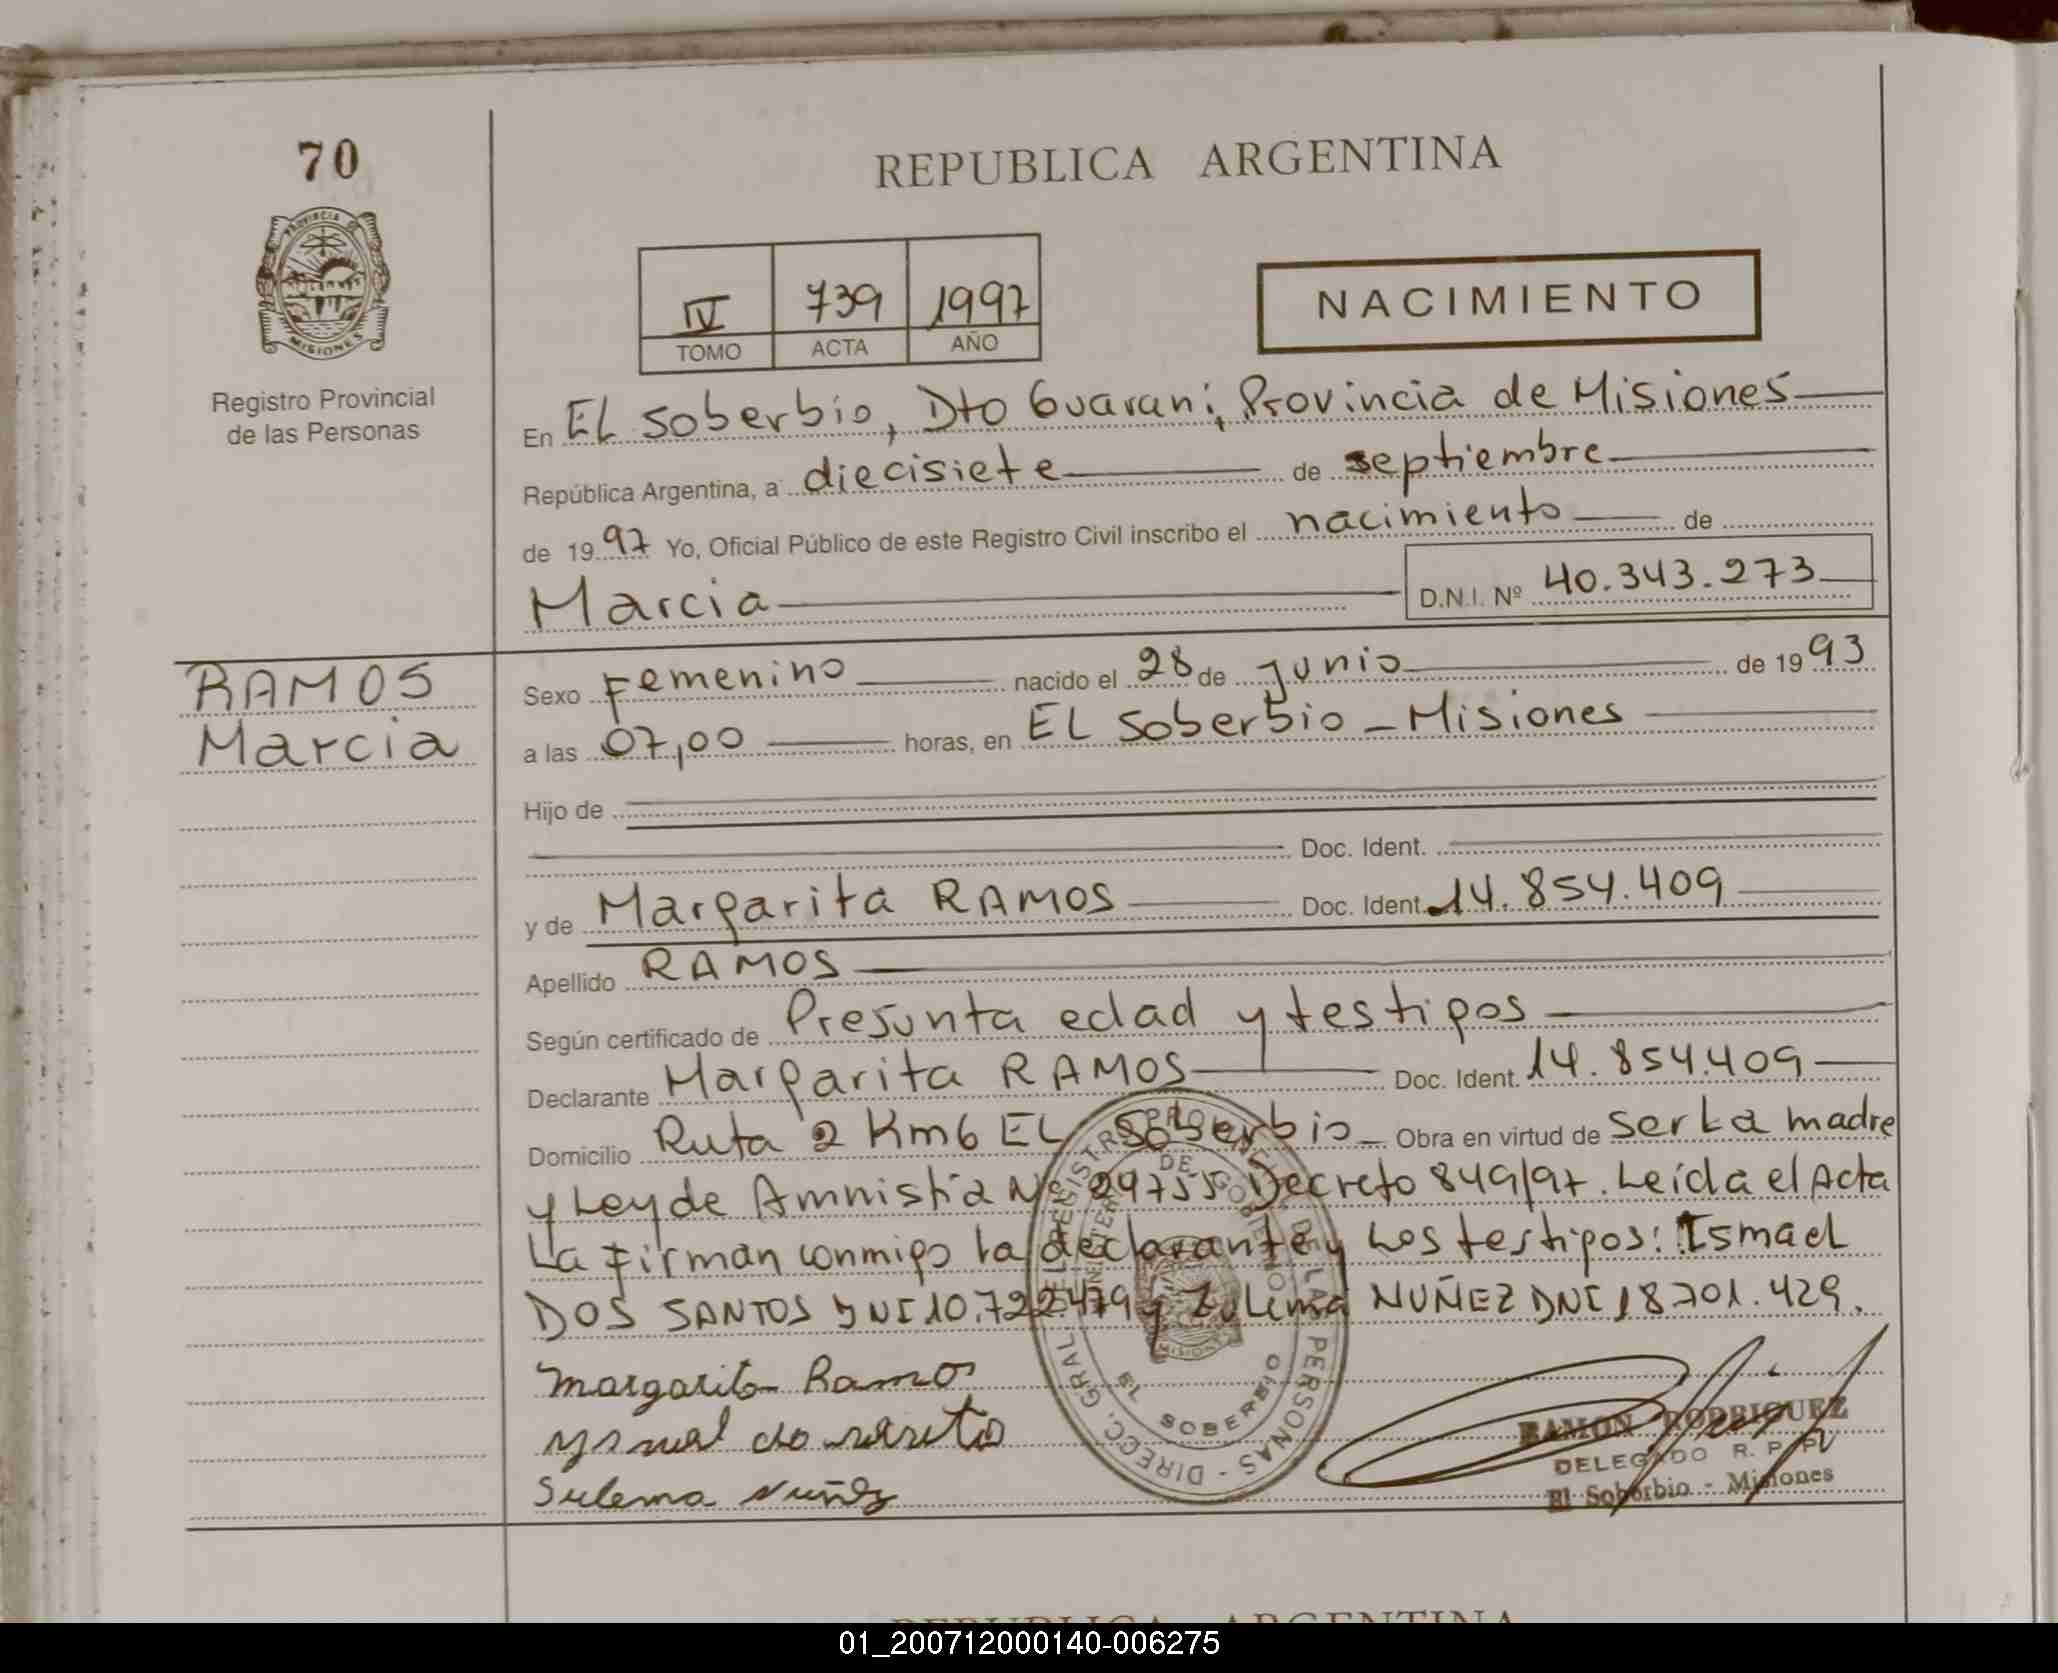 70
REPUBLICA ARGENTINA
PROVINCIA DE
MISIONES
Registro Provincial
de las Personas
IV 739 1997
TOMO ACTA AÑO
NACIMIENTO
En EL Soberbio, Dto Guaraní, Provincia de Misiones
República Argentina, a diecisiete de septiembre
de 1997 Yo, Oficial Público de este Registro Civil inscribo el nacimiento de
Marcia D.N.I. Nº 40.343.273
RAMOS
Marcia
Sexo Femenino nacido el 28 de Junio de 1993
a las 07,00 horas, en EL Soberbio - Misiones
Hijo de
Doc. Ident.
y de Margarita RAMOS Doc. Ident. 14.854.409
Apellido RAMOS
Según certificado de Presunta edad y testigos
Declarante Margarita RAMOS Doc. Ident. 14.854.409
Domicilio Ruta 2 Km6 EL Soberbio - Obra en virtud de ser La madre
y Ley de Amnistia Nº 24755 Decreto 849/97. Leída el Acta
La firman conmigo la declarante y Los testigos: Ismael
DOS SANTOS DNI 10.722.479 y Zulema NUÑEZ DNI 18.701.429.
Margarita Ramos
Sulema Nuñez
EL SOBERBIO
RAMON RODRIGUEZ
DELEGADO R. P. P.
El Soberbio - Misiones
REPUBLICA ARGENTINA
01_200712000140-006275